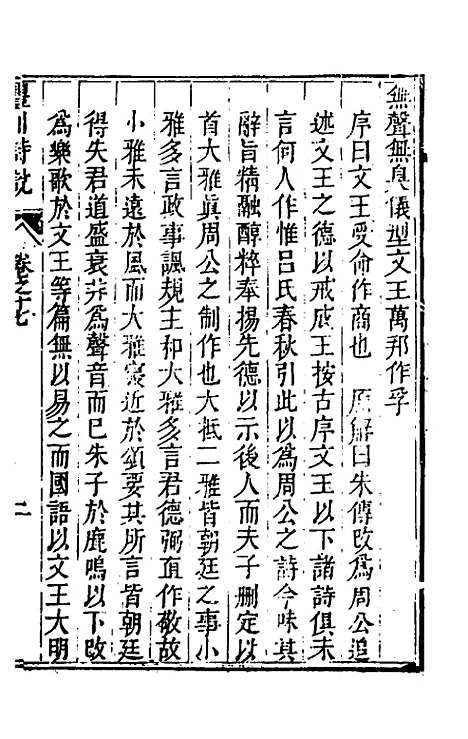 無聲無臭儀型文王萬邦作孚
序曰文王受命作商也　原解曰朱傳改為周公追
述文王之德以戒成王按古序文王以下諸詩俱未
言何人作惟呂氏春秋引此以為周公之詩今味其
辭旨精融醇粹奉揚先德以示後人而夫子刪定以
首大雅眞周公之制作也大抵二雅皆朝廷之事小
雅多言政事諷規主和大雅多言君德弼直作敬故
小雅未遠於風而大雅寖近於頌要其所言皆朝廷
得失君道盛衰并為聲音而已朱子於鹿鳴以下改
為樂歌於文王等篇無以易之而國語以文王大明
豐川詩說
卷之十七
二